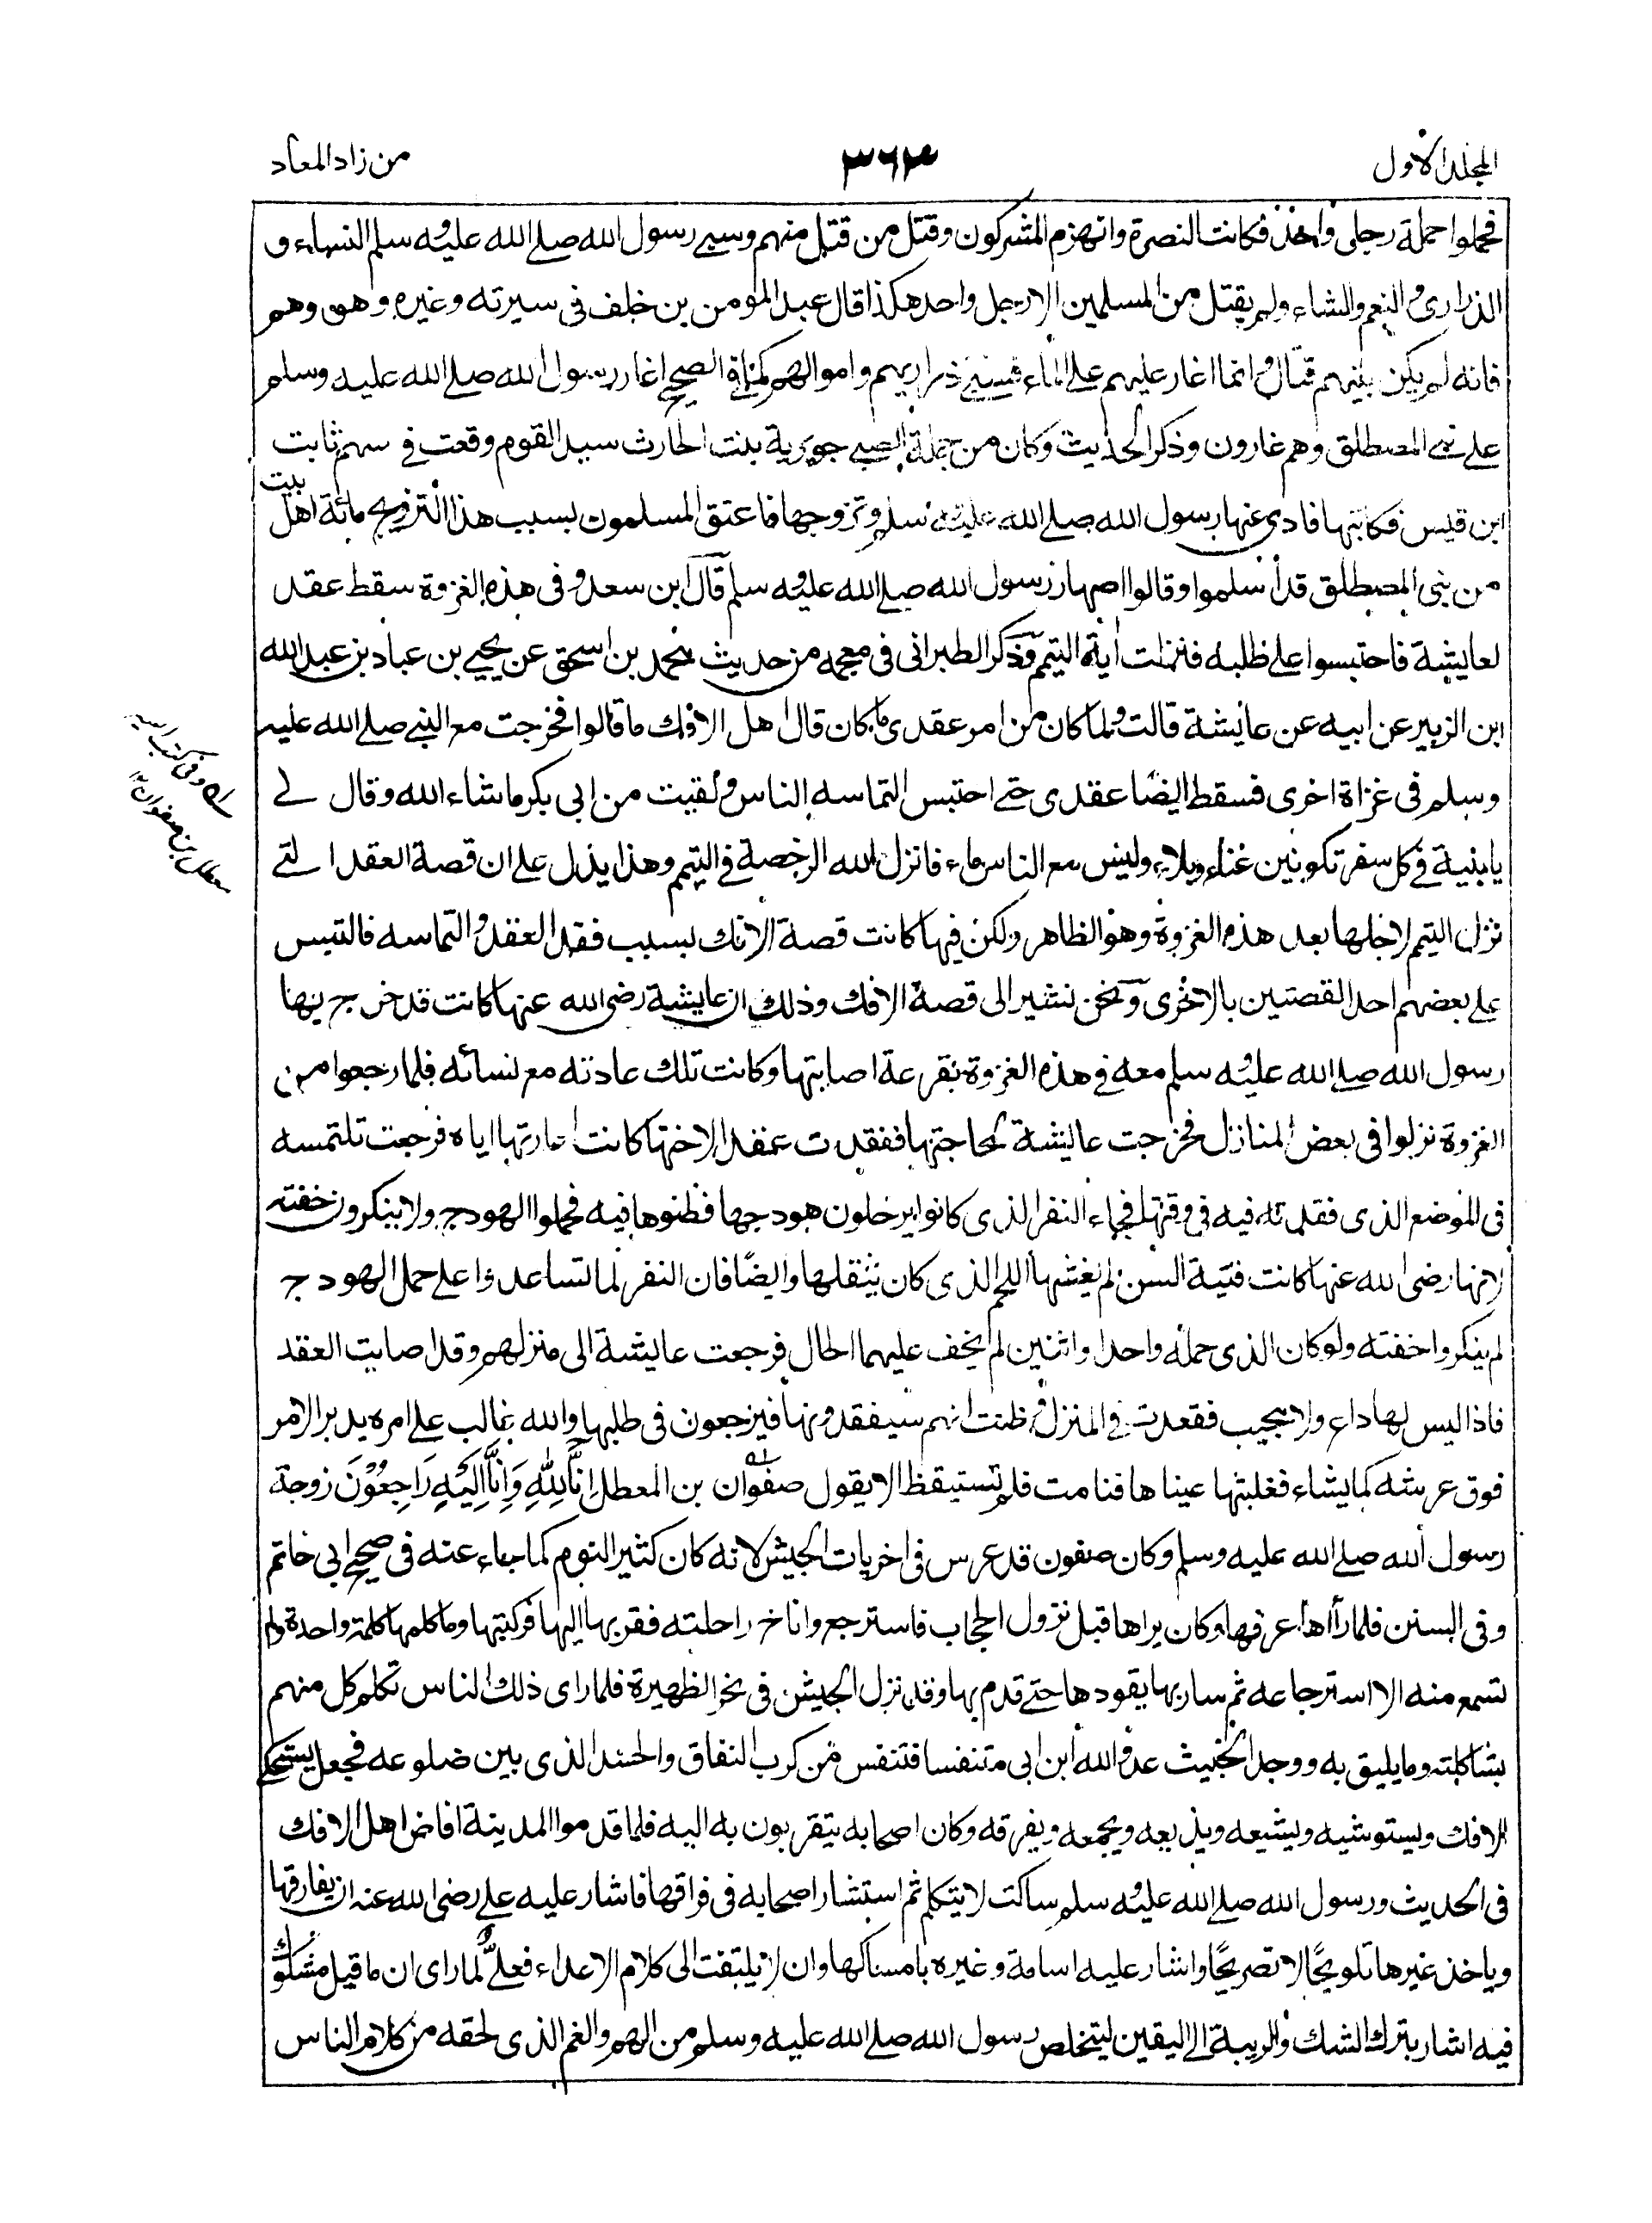 المجلد الاول
۳۶۴
من زاد المعاد
فحملوا حملة رجل واحد فكانت النصرة وانهزم المشركون وقتل من قتل منهم وسبى رسول الله صلى الله عليه وسلم النساء و
الذرارى والنعم والشاء ولم يقتل من المسلمين الا رجل واحد هكذا قال عبد المومن بن خلف فى سيرته وغيره وهو وهم
فانه لم يكن بينهم قتال وانما اغار عليهم على الماء فسبى ذراريهم واموالهم كما فى الصحيح اغار رسول الله صلى الله عليه وسلم
على بنى المصطلق وهم غارون وذكر الحديث وكان من جملة السبى جويرية بنت الحارث سيد القوم وقعت فى سهم ثابت
ابن قيس فكاتبها فادى عنها رسول الله صلى الله عليه وسلم وتزوجها فاعتق المسلمون بسبب هذا التزويج مائة اهل بيت
من بنى المصطلق قد اسلموا وقالوا اصهار رسول الله صلى الله عليه وسلم قال ابن سعد وفى هذه الغزوة سقط عقد
لعايشة فاحتبسوا على طلبه فنزلت اية التيمم وذكر الطبرانى فى معجمه من حديث محمد بن اسحق عن يحيى بن عباد بن عبد الله
ابن الزبير عن ابيه عن عايشة قالت ولما كان من امر عقدى ما كان قال اهل الافك ما قالوا فخرجت مع النبى صلى الله عليه
وسلم فى غزاة اخرى فسقط ايضًا عقدى حتى احتبس التماسه الناس ولقيت من ابى بكر ما شاء الله وقال لى
يا بنية فى كل سفر تكونين عناء وبلاء وليس مع الناس ماء فانزل الله الرخصة فى التيمم وهذا يدل على ان قصة العقد التى
نزل التيمم لاجلها بعد هذه الغزوة وهو الظاهر ولكن فيها كانت قصة الافك بسبب فقد العقد والتماسه فالتبس
على بعضهم احد القصتين بالاخرى ونحن نشير الى قصة الافك وذلك ان عايشة رضى الله عنها كانت قد خرج بها
رسول الله صلى الله عليه وسلم معه فى هذه الغزوة بقرعة اصابتها وكانت تلك عادته مع نسائه فلما رجعوا من
الغزوة نزلوا فى بعض المنازل فخرجت عايشة لحاجتها ففقدت عقدا لاختها كانت اعارتها اياه فرجعت تلتمسه
فى الموضع الذى فقدته فيه فى وقتها فجاء النفر الذى كانوا يرحلون هودجها فظنوها فيه فحملوا الهودج ولا ينكرون خفته
لانها رضى الله عنها كانت فتية السن لم يغشها اللحم الذى كان يثقلها وايضًا فان النفر لما تساعدوا على حمل الهودج
لم ينكروا خفته ولو كان الذى حمله واحدا واثنين لم يخف عليهما الحال فرجعت عايشة الى منزلهم وقد اصابت العقد
فاذا ليس لها داع ولا مجيب فقعدت فى المنزل وظنت انهم سيفقدونها فيرجعون فى طلبها والله غالب على امره يدبر الامر
فوق عرشه كما يشاء فغلبتها عيناها فنامت فلم تستيقظ الا بقول صفوان بن المعطل إِنَّا لِلّٰهِ وَإِنَّا إِلَيْهِ رَاجِعُوْنَ زوجة
رسول الله صلى الله عليه وسلم وكان صفون قد عرس فى اخريات الجيش لانه كان كثير النوم كما جاء عنه فى صحيح ابى حاتم
وفى السنن فلما رآها عرفها وكان يراها قبل نزول الحجاب فاسترجع واناخ راحلته فقربها اليها فركبتها وما كلمها كلمة واحدة ولم
تسمع منه الا استرجاعه ثم سار بها يقودها حتى قدم بها وقد نزل الجيش فى نحر الظهيرة فلما راى ذلك الناس تكلم كل منهم
بشاكلته وما يليق به ووجد الخبيث عدو الله ابن ابى متنفسا فتنفس من كرب النفاق والحسد الذى بين ضلوعه فجعل يستحكى
الافك ويستوشيه ويشيعه ويذيعه ويجمعه ويفرقه وكان اصحابه يتقربون به اليه فلما قدموا المدينة افاض اهل الافك
فى الحديث ورسول الله صلى الله عليه وسلم ساكت لا يتكلم ثم استشار اصحابه فى فراقها فاشار عليه على رضى الله عنه ان يفارقها
وياخذ غيرها تلويحًا لا تصريحًا واشار عليه اسامة وغيره بامساكها وان لا يلتفت الى كلام الاعداء فعلىٌّ لما راى ان ما قيل مشكوك
فيه اشار بترك الشك والريبة الى اليقين ليتخلص رسول الله صلى الله عليه وسلم من الهم والغم الذى لحقه من كلام الناس